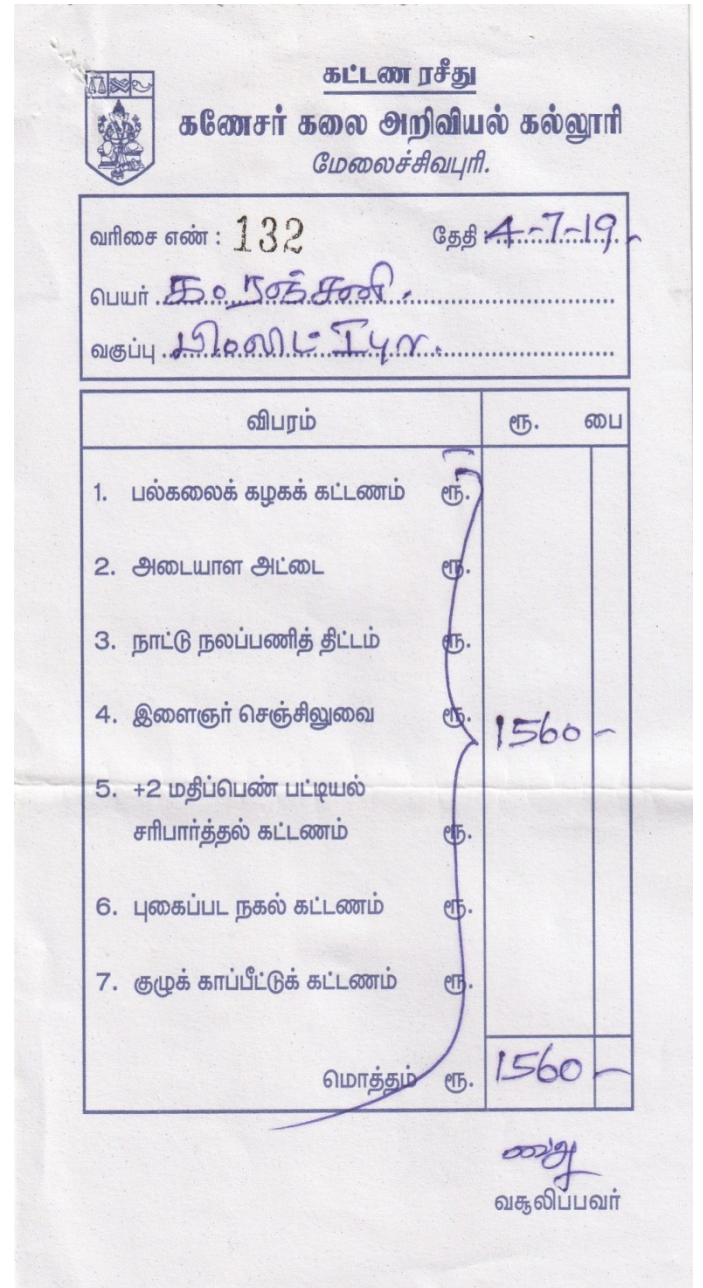 கட்டண ரசீது
கணேசர் கலை அறிவியல் கல்லூரி
மேலைச்சிவபுரி.
வரிசை எண் : 132 தேதி 4-7-19
பெயர்
வகுப்பு
விபரம் ரூ. பை
1. பல்கலைக் கழகக் கட்டணம் ரூ.
2. அடையாள அட்டை ரூ.
3. நாட்டு நலப்பணித் திட்டம் ரூ.
4. இளைஞர் செஞ்சிலுவை ரூ. 1560 -
5. +2 மதிப்பெண் பட்டியல்
சரிபார்த்தல் கட்டணம் ரூ.
6. புகைப்பட நகல் கட்டணம் ரூ.
7. குழுக் காப்பீட்டுக் கட்டணம் ரூ.
மொத்தம் ரூ. 1560 -
வசூலிப்பவர்